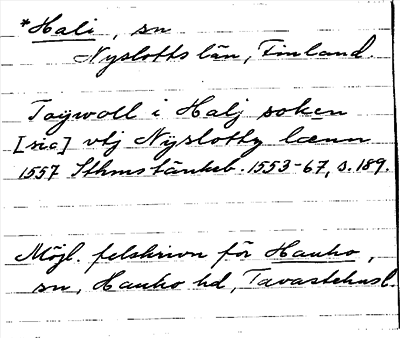 *Hali, sn
Nyslotts län, Finland.
Toÿwoll i Halj soken
[sic] vtj Nÿslotty lænn
1557 Sthms tänkeb. 1553-67, s. 189.
Möjl. felskrivn för Hauho,
sn, Hauho hd, Tavastehusl.